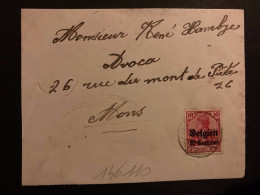 Monsieur René Hambye
Avoca
26 rue du mont de Piété
26
Mons
10 10
Belgien
10 Centimes
146110